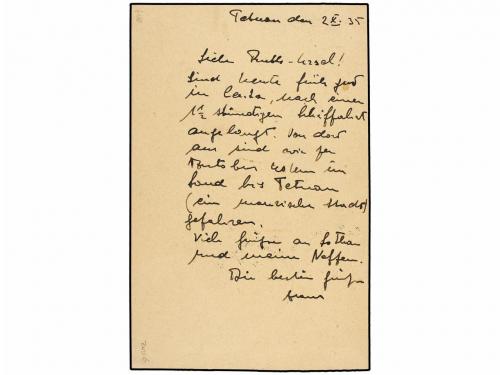 Tetuan den 2.XI.35
Liebe Ruth-Ursel!
Sind heute früh gut
in Ceuta, nach einer
1½ stündigen Schiffahrt
angelangt. Von dort
aus sind wir per
Autobus im
Land bis Tetuan
(ein maurische Stadt)
gefahren.
Viele Grüsse an Lothar
und meine Neffen.
Die besten Grüsse